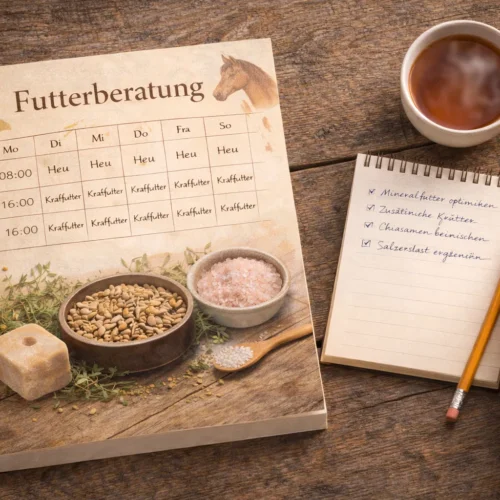 Futterberatung
Mo Di Mi Do Fra So
08:00 Heu Heu Heu Heu Heu
16:00 Kraffutter Kraffutter Kraffutter Kraffutter Kraffutter
16:00 Kraffutter Kraffutter Kraffutter Kraffutter Kraffutter
Mineralfutter optimihen
Zusätiniche Krütter
Chiasamen beinischen
Salzerslast ergseniin